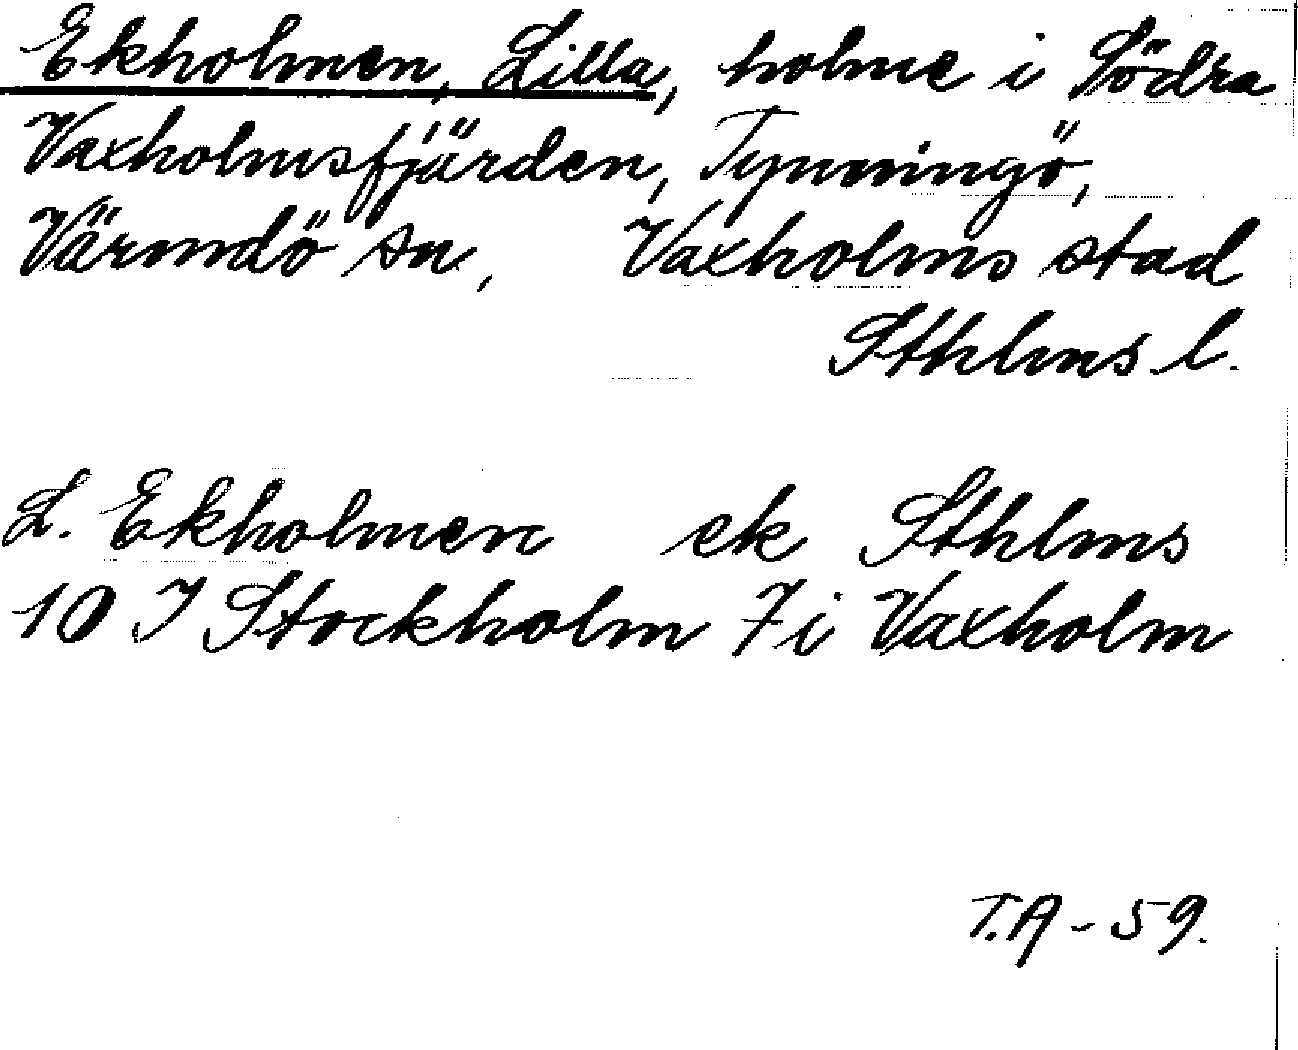 Ekholmen, Lilla, holme i Södra
Vaxholmsfjärden, Tynningö,
Värmdö sn, Vaxholms stad
Sthlms l.
L. Ekholmen ek Sthlms
10 I Stockholm 7 i Vaxholm
T.A - 59.